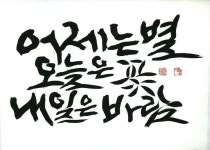 어제는 별
오늘은 꽃
내일은 바람